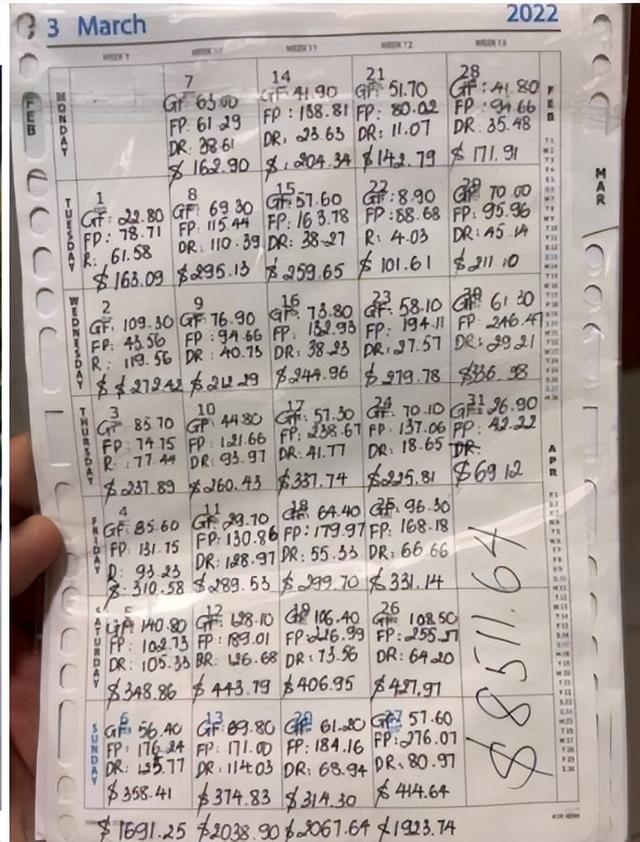 3 March
2022
WEEK 11
WEEK 12
WEEK 13
FEB
MONDAY
7
GF: 63.00
FP: 61 29
DR: 38.61
$ 162.90
14
GF: 41.90
FP: 138.81
DR. 23.63
$ : 204.34
21
GF: 51.70
FP: 80.02
DR: 11.07
$ 142.79
28
GF: 41.80
FP: 94.66
DR: 35.48
$ 171.91
FEB
MAR
TUESDAY
1
GF: 22.80
FP: 78.71
R: 61.58
$ 163.09
8
GF: 69 30
FP: 115.44
DR: 110.39
$ 295.13
15
GF: 57.60
FP: 163.78
DR: 38.27
$ 259.65
22
GF: 8.90
FP: 88.68
R: 4.03
$ 101.61
29
GF: 70.00
FP: 95.96
DR: 45.14
$ 211 10
WEDNESDAY
2
GF: 109.30
FP: 43.56
R: 119.56
$ $ 272.42
9
GF: 76.90
FP: 94.66
DR: 40.73
$ 212.29
16
GF: 73.80
FP: 132.93
DR: 38.23
$ 244.96
23
GF: 58.10
FP: 194.11
DR: 27.57
$ 279.78
30
GF: 61 30
FP: 246.47
DR: 29.21
$336.98
THURSDAY
3
GF: 85.70
FP: 74.75
R: 77.44
$ 237.89
10
GF: 44.80
FP: 121.66
DR: 93.97
$ 260.43
17
GF: 57.30
FP: 238.67
DR: 41.77
$ 337.74
24
GF: 70.10
FP: 137.06
DR: 18.65
$ 225.81
31
GF: 26.90
FP: 42.22
DR:
$ 69 12
APR
FRIDAY
4
GF: 85.60
FP: 131.75
D: 93.23
$ 310.58
11
GF: 29.70
FP: 130.86
DR: 128.97
$ 289.53
18
GF: 64.40
FP: 179.97
DR: 55.33
$ 299.70
25
GF: 96.30
FP: 168.18
DR: 66.66
$ 331.14
$8511.64
SATURDAY
5
GF: 140.80
FP: 102.73
DR: 105.33
$ 348.86
12
GF: 128.10
FP: 189.01
BR: 126.68
$ 443.79
19
GF: 106.40
FP: 226.99
DR: 73.56
$ 406.95
26
GF: 108.50
FP: 255.27
DR: 64.20
$ 427.97
SUNDAY
6
GF: 56.40
FP: 176.24
DR: 125.77
$ 358.41
13
GF: 89.80
FP: 171.00
DR: 114.03
$ 374.83
20
GF: 61.20
FP: 184.16
DR: 68.94
$ 314.30
27
GF: 57.60
FP: 276.07
DR: 80.97
$ 414.64
$ 1691.25
$ 2038.90
$ 2067.64
$ 1923.74